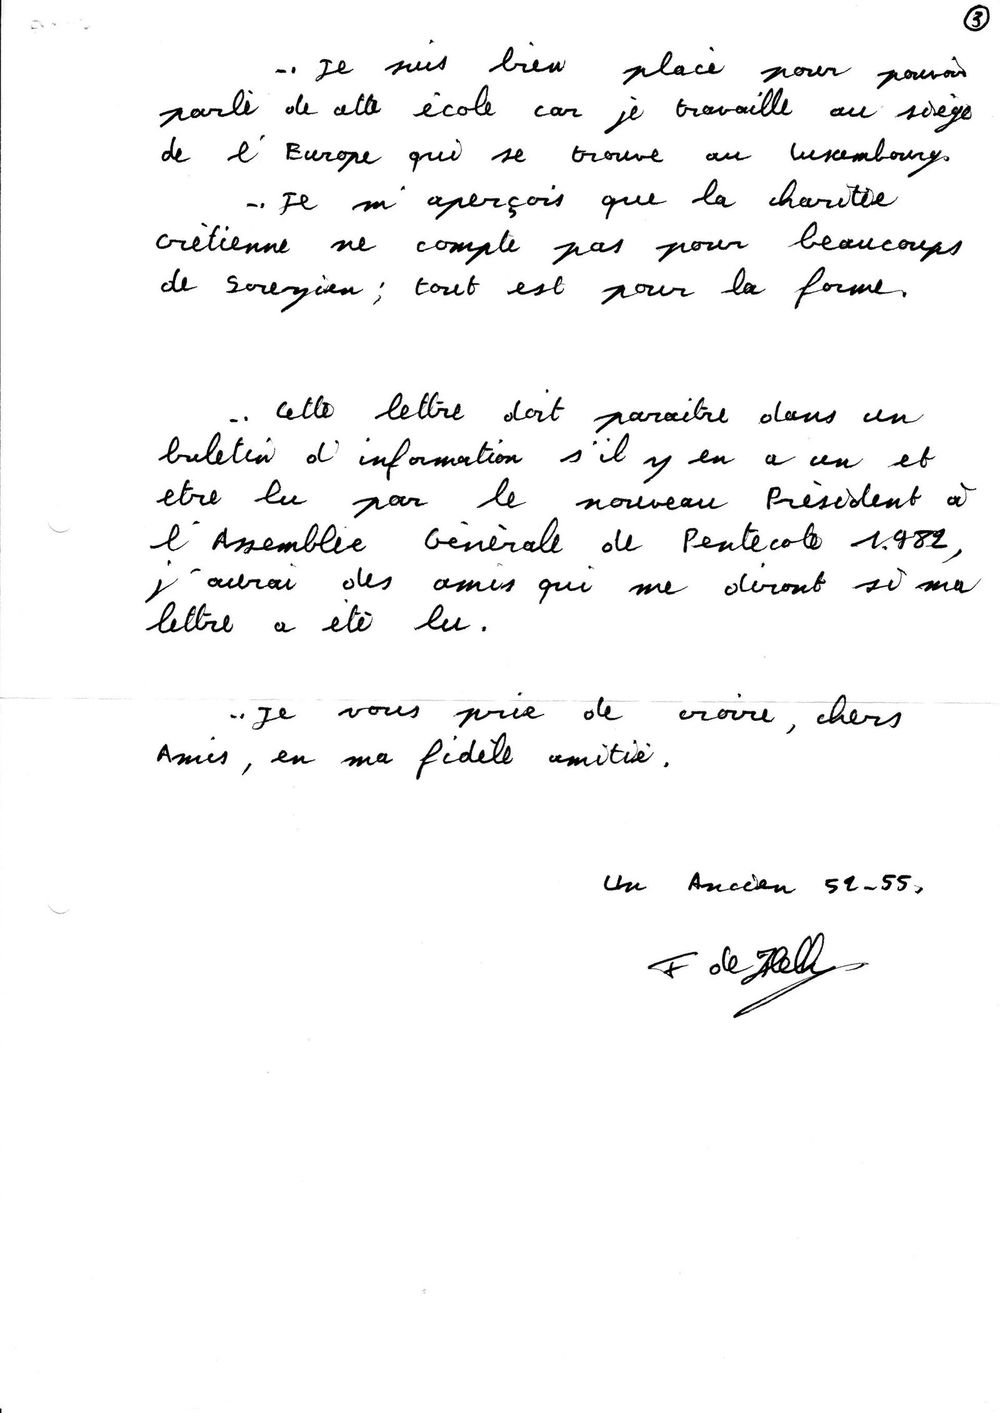 3
.. Je suis bien placé pour pouvoir
parlé de cette école car je travaille au siège
de l'Europe qui se trouve au Luxembourg.
.. Je m'aperçois que la charitée
crétienne ne compte pas pour beaucoups
de Sorezien ; tout est pour la forme.
.. Cette lettre doit paraitre dans un
buletin d'information s'il y en a un et
etre lu par le nouveau Président à
l'Assemblée Générale de Pentecote 1.982,
j'aurai des amis qui me diront si ma
lettre a été lu.
.. Je vous prie de croire, chers
Amis, en ma fidèle amitié.
Un Ancien 52-55.
F de